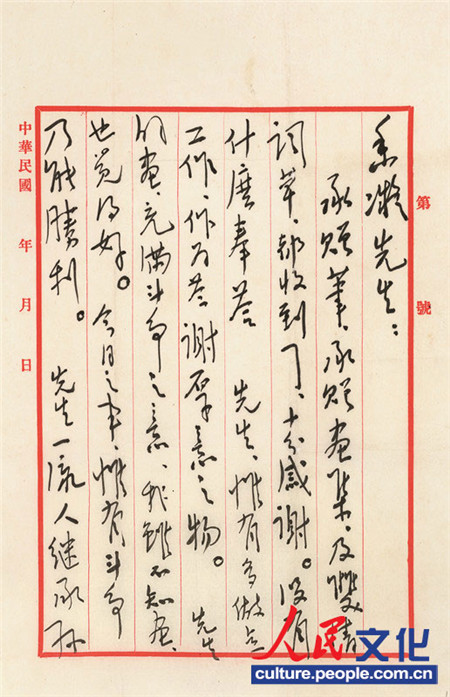 第 號
香凝先生：
承赠筆、承赠画集、及雙清
词草、都收到了、十分感谢。没有
什麽奉答 先生、惟有多做点
工作、作为答谢厚意之物。 先生
的画、充满斗争之意、我虽不知画、
也觉得好。 今日之事、惟有斗争
乃能勝利。 先生一流人继承孙
中華民國 年 月 日
人民文化
culture.people.com.cn